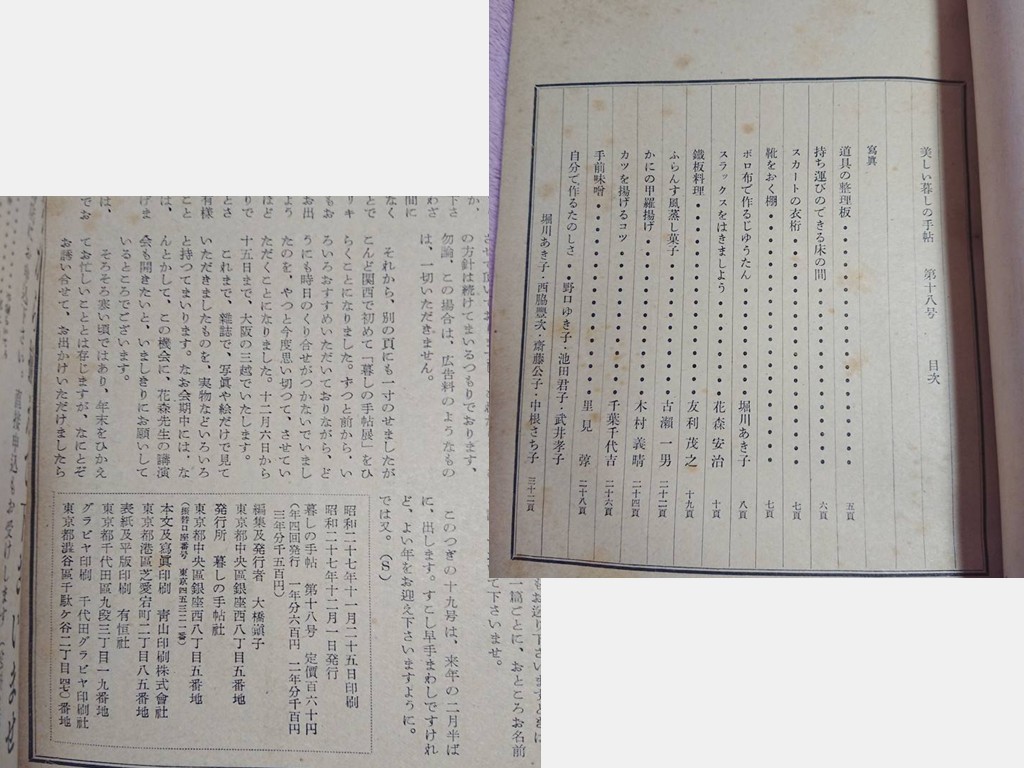 美しい暮しの手帖 第十八号 目次
寫眞
道具の整理板 五頁
持ち運びのできる床の間 六頁
スカートの衣桁 七頁
靴をおく棚 七頁
ボロ布で作るじゆうたん 堀川あき子 八頁
スラックスをはきましよう 花森安治 十頁
鐵板料理 友利茂之 十九頁
ふらんす風蒸し菓子 古瀬一男 二十二頁
かにの甲羅揚げ 木村義晴 二十四頁
カツを揚げるコツ 千葉千代吉 二十六頁
手前味噌 里見弴 二十八頁
自分で作るたのしさ 野口ゆき子・池田君子・武井孝子
堀川あき子・西脇豐次・齋藤公子・中根さち子 三十二頁
の方針は続けてまいるつもりでおります、
勿論、この場合は、広告料のようなもの
は、一切いただきません。
それから、別の頁にも一寸のせましたが
こんど関西で初めて「暮しの手帖展」をひ
らくことになりました。ずつと前から、い
ろいろおすすめいただいておりながら、ど
うにも時日のくり合せがつかないでいまし
たのを、やつと今度思い切つて、させてい
ただくことになりました。十二月六日から
十五日まで、大阪の三越でいたします。
これまで、雑誌で、写眞や絵だけで見て
いただきましたものを、実物などいろいろ
と持つてまいります。なお会期中には、な
んとかして、この機会に、花森先生の講演
会も開きたいと、いましきりにお願いして
いるところでございます。
そろそろ寒い頃ではあり、年末をひかえ
てお忙しいこととは存じますが、なにとぞ
お誘い合せて、お出かけいただけましたら
一篇ごとに、おところお名前
て下さいませ。
このつぎの十九号は、来年の二月半ば
に、出します。すこし早手まわしですけれ
ど、よい年をお迎え下さいますように。
では又。(S)
昭和二十七年十一月二十五日印刷
昭和二十七年十二月一日発行
暮しの手帖 第十八号 定價百六十円
(年四回発行 一年分六百円 二年分千百円
三年分千五百円)
編集及発行者 大橋鎭子
東京都中央區銀座西八丁目五番地
発行所 暮しの手帖社
東京都中央區銀座西八丁目五番地
(振替口座番号 東京四五三二一番)
本文及寫眞印刷 靑山印刷株式會社
東京都港區芝愛宕町二丁目八五番地
表紙及平版印刷 有恒社
東京都千代田區九段三丁目一九番地
グラビヤ印刷 千代田グラビヤ印刷社
東京都澁谷區千駄ケ谷二丁目四七番地